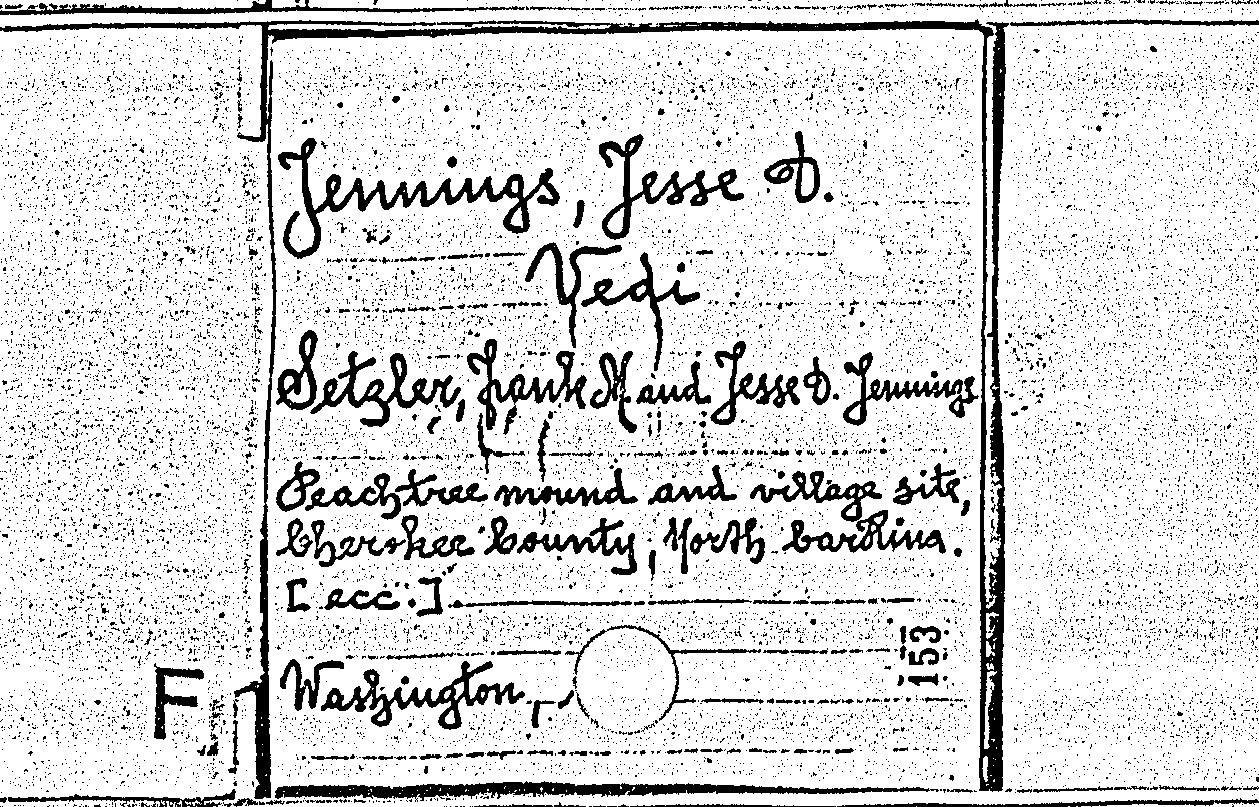 Jennings, Jesse D.
Vedi
Setzler, Frank M and Jesse D. Jennings
Peachtree mound and village site,
Cherokee County, North Carolina.
[ecc.].
153
Washington,
F